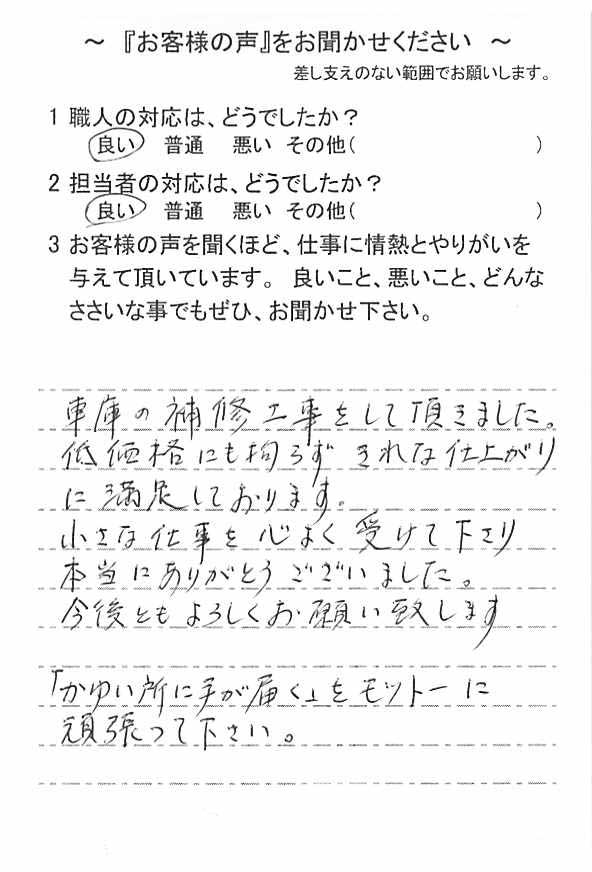 ～ 『お客様の声』をお聞かせください ～
差し支えのない範囲でお願いします。
1 職人の対応は、どうでしたか？
良い 普通 悪い その他( )
2 担当者の対応は、どうでしたか？
良い 普通 悪い その他( )
3 お客様の声を聞くほど、仕事に情熱とやりがいを
与えて頂いています。 良いこと、悪いこと、どんな
ささいな事でもぜひ、お聞かせ下さい。
車庫の補修工事をして頂きました。
低価格にも拘らず きれな仕上がり
に満足しております。
小さな仕事を心よく受けて下さり
本当にありがとうございました。
今後ともよろしくお願い致します
「かゆい所に手が届く」をモットーに
頑張って下さい。